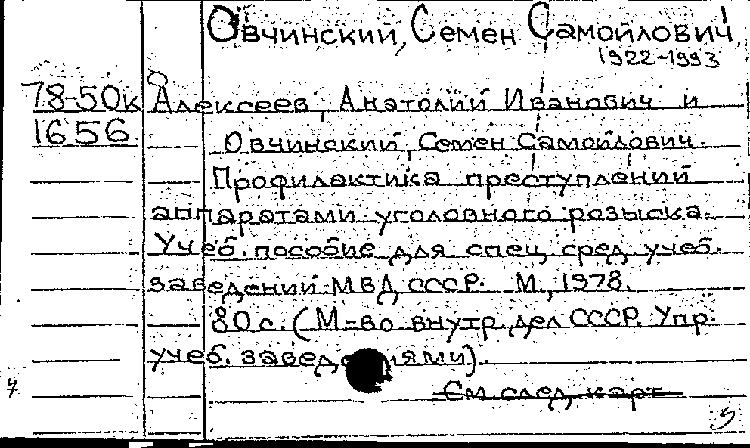 Овчинский, Семен Самойлович,
1922-1993
78-50к Алексеев, Анатолий Иванович и
1656 Овчинский, Семен Самойлович.
Профилактика преступлений
аппаратами уголовного розыска.
Учеб. пособие для спец. сред. учеб.
заведений МВД СССР. М., 1978.
80 с. (М-во внутр. дел СССР. Упр.
учеб. заведениями).
См. след. карт.
5